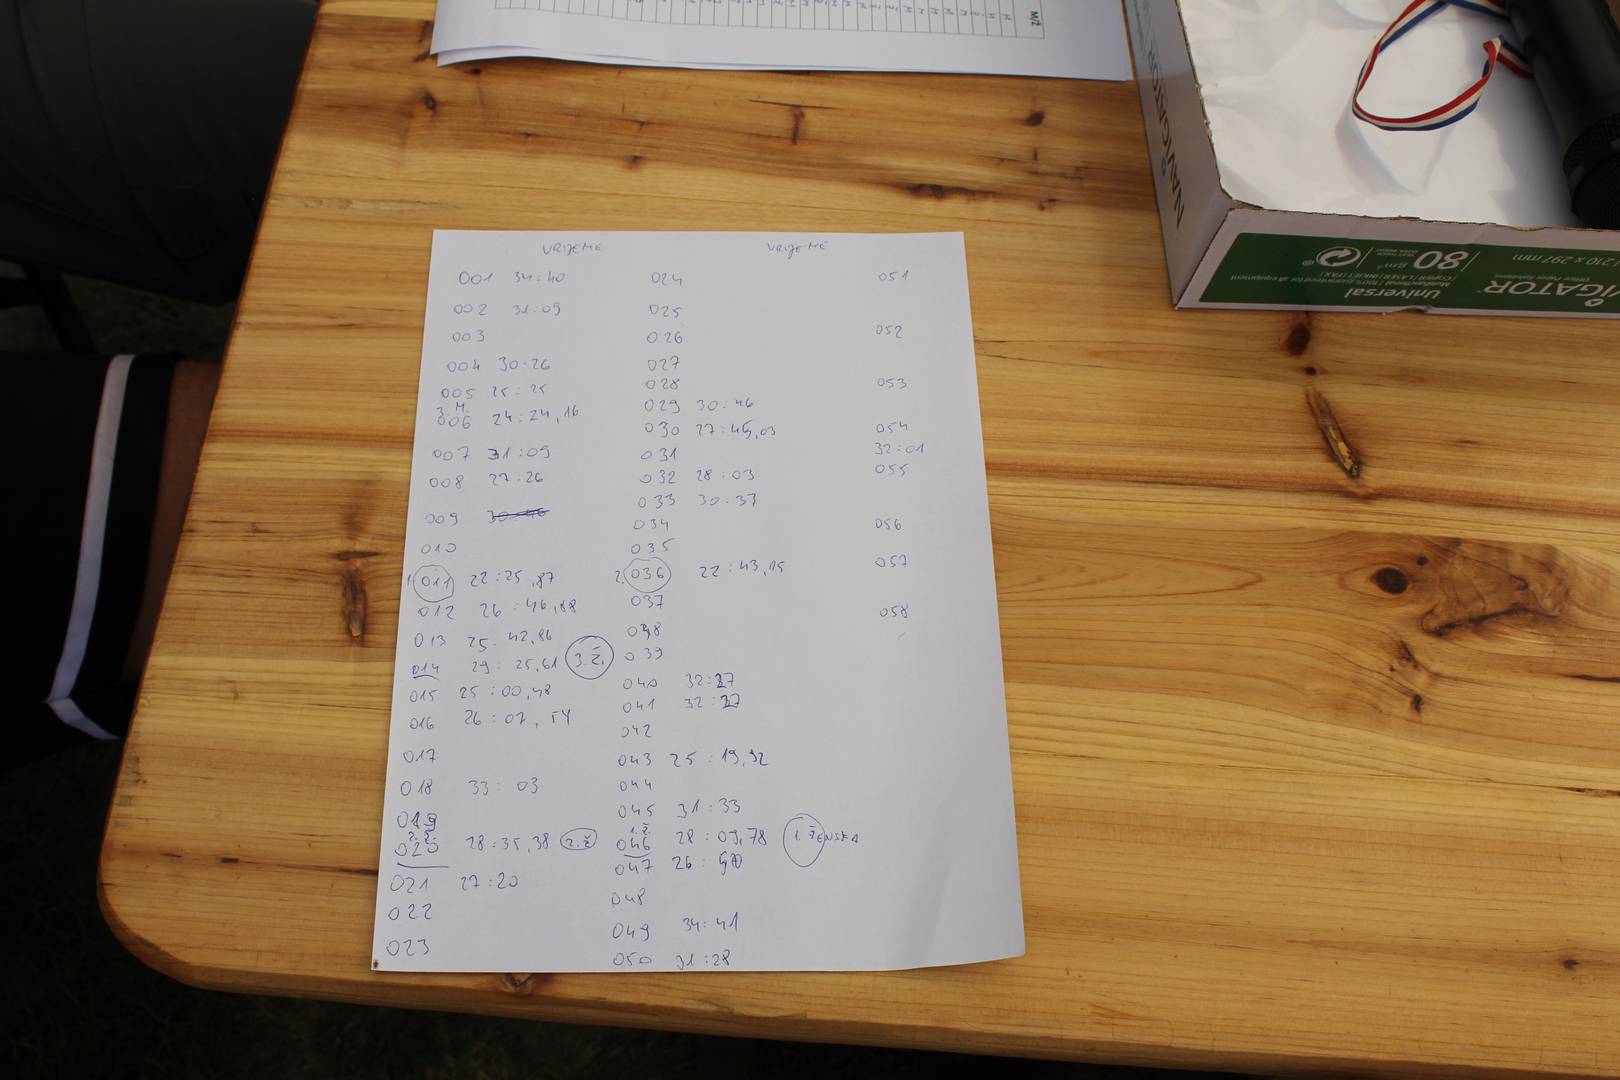 M/2
VRIJEME
001 34:40
002 31:09
003
004 30:26
005 25:25
3. M.
006 24:24,16
007 31:09
008 27:26
009 30:46
010
1. 011 22:25,87
012 26:46,88
013 25:42,86
014 29:25,61 3.Ž.
015 25:00,48
016 26:07,
017
018 33:03
019
2.Ž.
020 28:35,38 2.Ž
021 27:20
022
023
VRIJEME
024
025
026
027
028
029 30:46
030 27:45,03
031
032 28:03
033 30:37
034
035
2. 036 22:43,15
037
038
039
040 32:27
041 32:27
042
043 25:19,92
044
045 31:33
1.Ž.
046 28:09,78 1. ŽENSKA
047 26:
048
049 34:41
050 31:28
051
052
053
054
32:01
055
056
057
058
NAVIGATOR
Universal
80 g/m²
210 x 297 mm
Office Paper Solutions
Multifunctional | 100% guaranteed for all equipment
[COPIER | LASER | INKJET | FAX]
VIGATOR